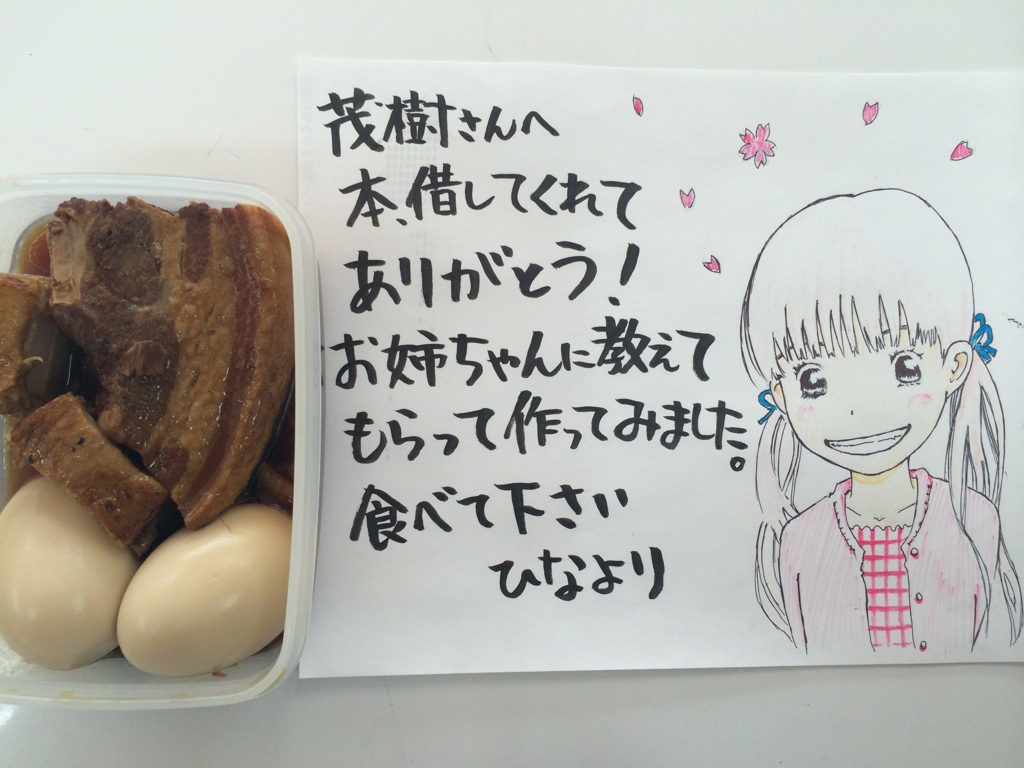 茂樹さんへ
本、借してくれて
ありがとう!
お姉ちゃんに教えて
もらって作ってみました。
食べて下さい
ひなより